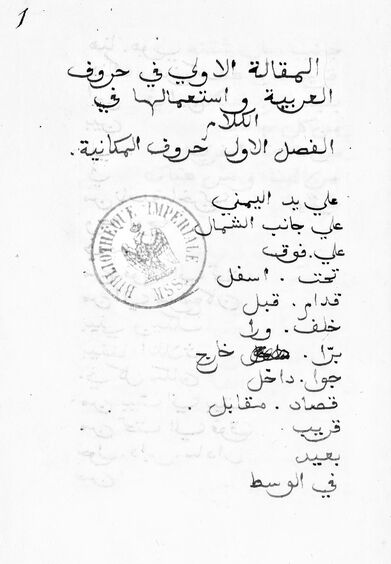 1
المقالة الاولي في حروف
العربية و استعمالها في
الكلام
الفصل الاول حروف المكانية.
علي يد اليمني
علي جانب الشمال
علي. فوق
تحت . اسفل
قدام . قبل
خلف . ورا
برّا . خارج
جوا . داخل
قصاد . مقابل .
قريب
بعيد
في الوسط
BIBLIOTHÈQUE IMPERIALE
MSS.